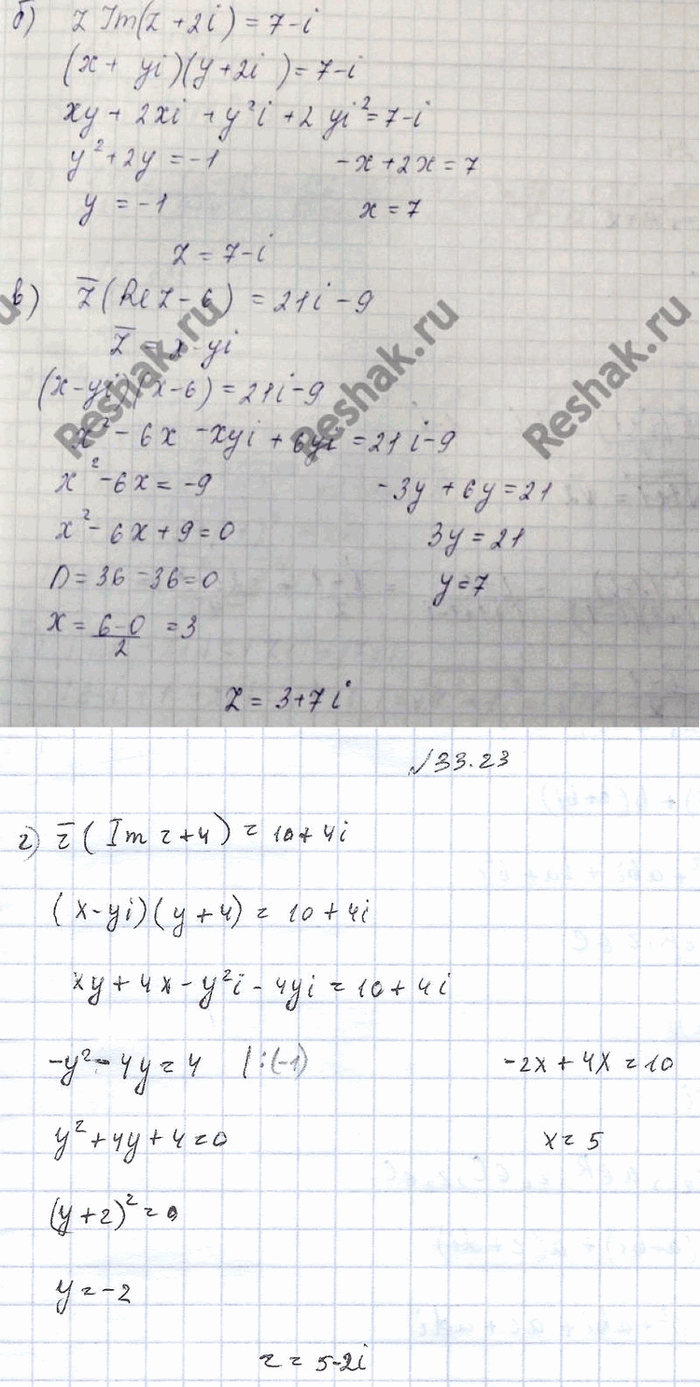 б) z Im(z + 2i) = 7-i
(x + yi)(y+2i) = 7-i
xy + 2xi + y²i + 2yi² = 7-i
y² + 2y = -1 -x + 2x = 7
y = -1 x = 7
z = 7-i
в) z̅ (Re z - 6) = 21i - 9
z̅ = x - yi
(x-yi)(x-6) = 21i-9
x² - 6x - xyi + 6yi = 21i-9
x² - 6x = -9 -3y + 6y = 21
x² - 6x + 9 = 0 3y = 21
D = 36 - 36 = 0 y = 7
x = (6-0)/2 = 3
z = 3 + 7i
Reshak.ru
Reshak.ru
Reshak.ru
√33.23
г) z̅ ( Im z + 4 ) = 10 + 4i
(x-yi)(y+4) = 10 + 4i
xy + 4x - y²i - 4yi = 10 + 4i
-y² - 4y = 4 |:(-1) -2x + 4x = 10
y² + 4y + 4 = 0 x = 5
(y+2)² = 0
y = -2
z = 5-2i